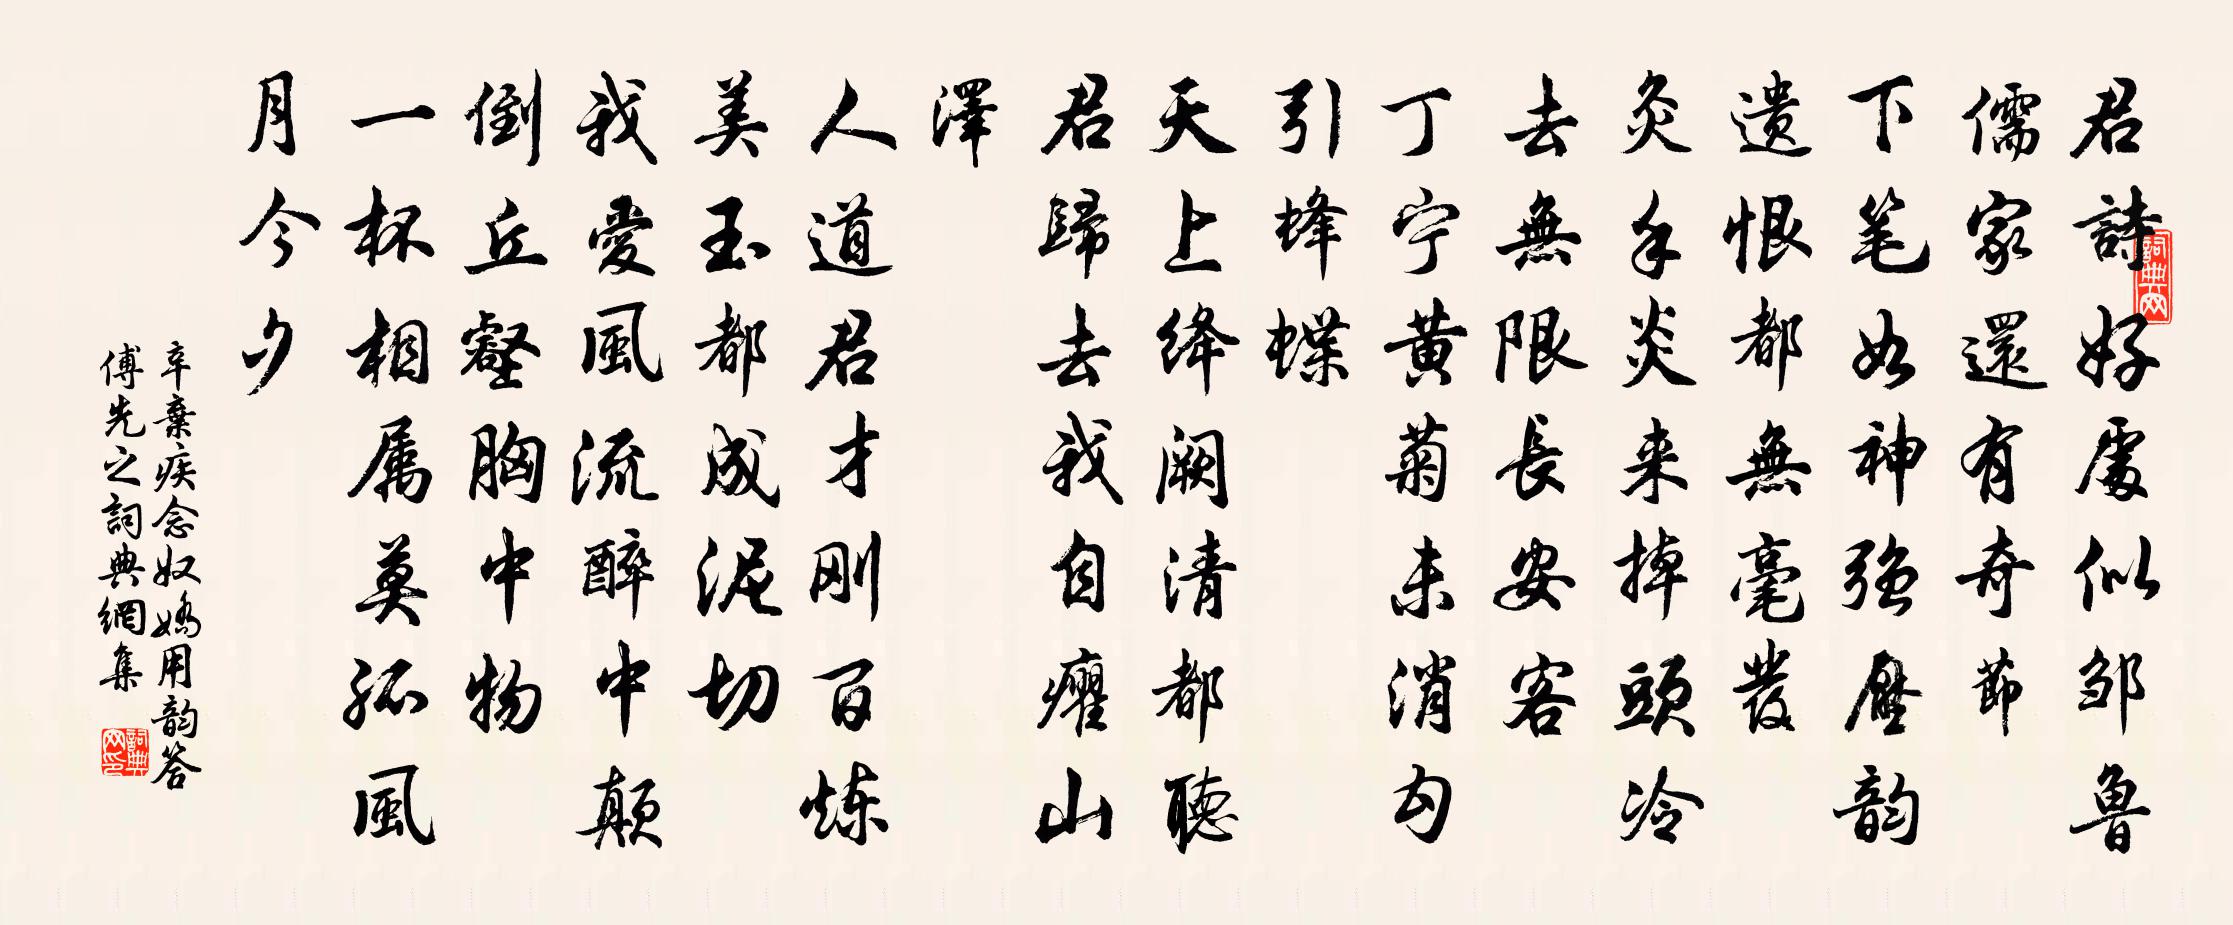 君詩好處似邹魯
儒家還有奇節
下笔如神强壓韵
遗恨都無毫發
炙手炎来掉頭冷
去無限長安客
丁宁黄菊未消勾
引蜂蝶
天上绛阙清都聽
君歸去我自癯山
澤
人道君才刚百炼
美玉都成泥切
我愛風流醉中颠
倒丘壑胸中物
一杯相属莫孤風
月今夕
辛棄疾念奴嬌用韵答
傅先之詞典網集
詞典网
詞典网印